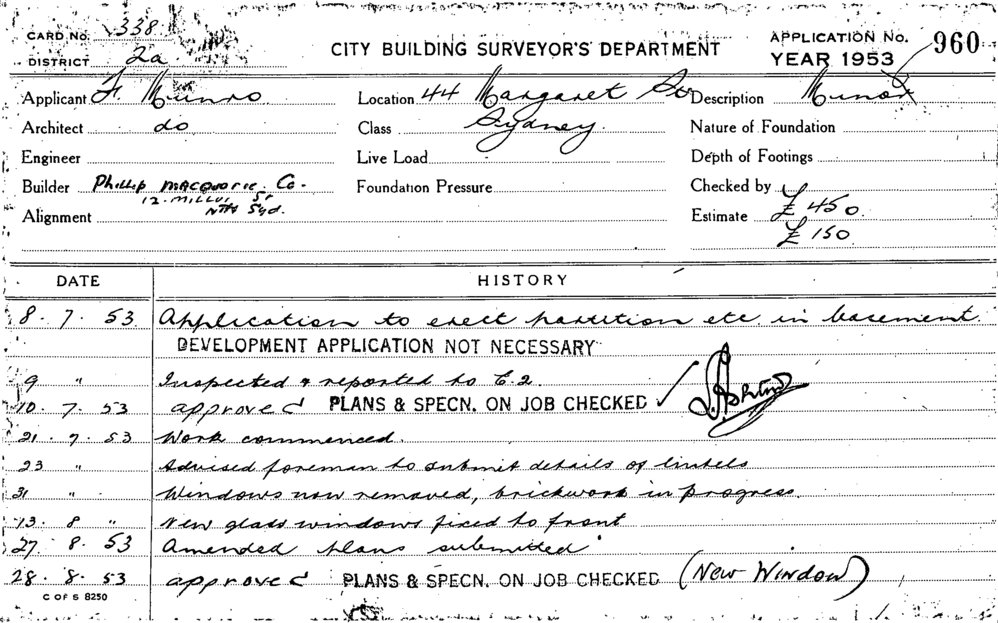 CARD No. 338
DISTRICT 2a
CITY BUILDING SURVEYOR'S DEPARTMENT
APPLICATION No. 960
YEAR 1953
Applicant F. Munro
Location 44 Margaret St
Description Minor
Architect do
Class Sydney
Nature of Foundation
Engineer
Live Load
Depth of Footings
Builder Phillip Macquarie Co.
12 St
Nth Syd.
Foundation Pressure
Checked by
Alignment
Estimate £ 450
£ 150
DATE HISTORY
8. 7. 53 Application to erect partition etc. in basement.
DEVELOPMENT APPLICATION NOT NECESSARY
9 " Inspected & reported to C.2.
10. 7. 53 approved PLANS & SPECN. ON JOB CHECKED ✓
21. 7. 53 Work commenced.
23 " Advised foreman to submit details of lintels
31 " Windows now removed, brickwork in progress.
13. 8 " New glass windows fixed to front
27. 8. 53 Amended plans submitted
28. 8. 53 approved PLANS & SPECN. ON JOB CHECKED (New Window)
C OF S 8250